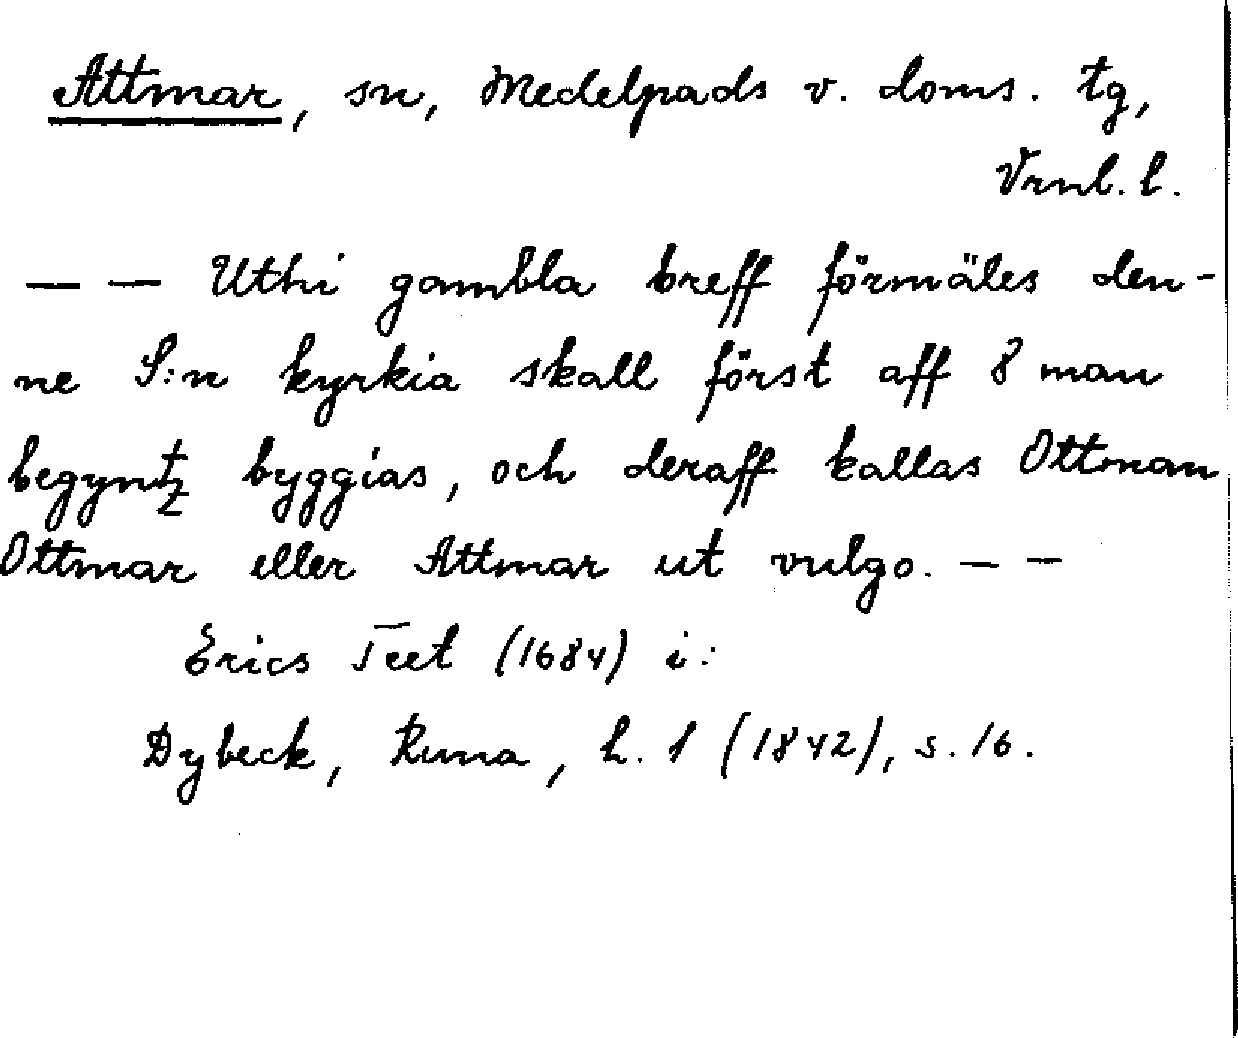 Attmar, sn, Medelpads v. doms. tg,
Vrnl. l.
— — Uthi gambla breff förmäles den-
ne S:n kyrkia skall först aff 8 man
begyntz byggias, och deraff kallas Ottman
Ottmar eller Attmar ut vulgo. — —
Erics Teet (1684) i:
Dybeck, Runa, h. 1 (1842), s. 16.